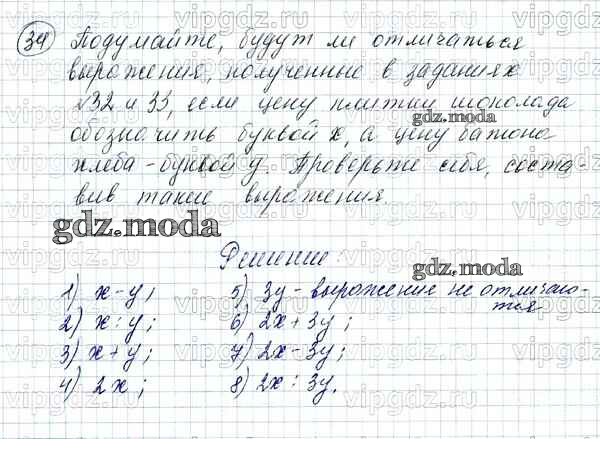 34 Подумайте, будут ли отличаться
выражения, полученные в заданиях
№32 и 33, если цену плитки шоколада
обозначить буквой x, а цену батона
хлеба - буквой y. Проверьте себя, соста-
вив такие выражения.
gdz.moda
gdz.moda
Решение:
gdz.moda
1) x-y;
2) x:y;
3) x+y;
4) 2x;
5) 3y - выражение не отличаю-
тся
6) 2x+3y;
7) 2x-3y;
8) 2x:3y.
vipgdz.ru